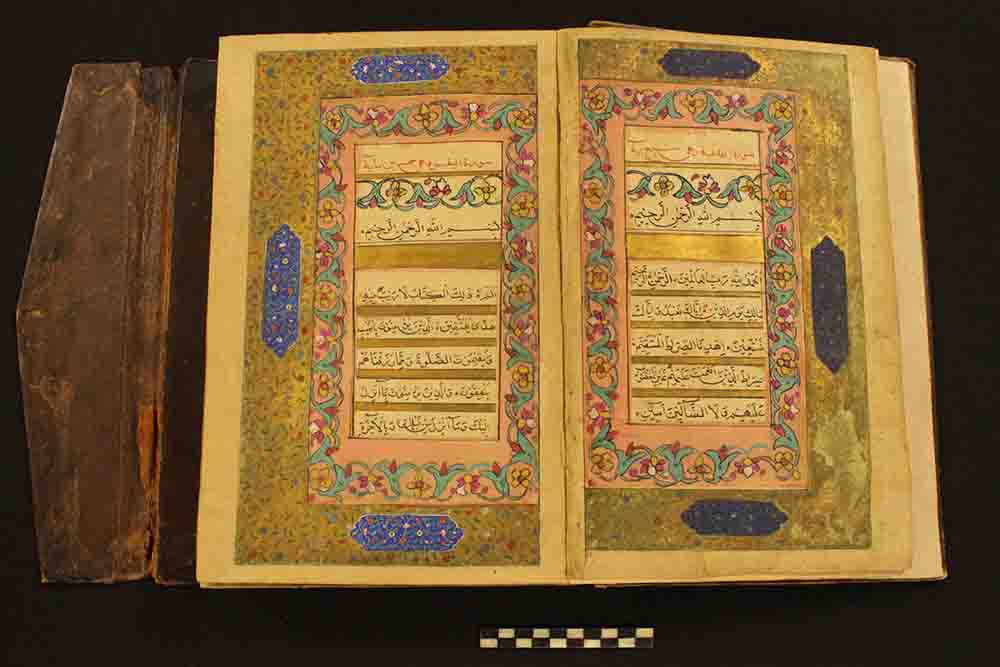 سورة الفاتحة وهي سبع آية
بسم الله الرحمن الرحيم
الحمد لله رب العالمين الرحمن الرحيم
مالك يوم الدين إياك نعبد وإياك
نستعين اهدنا الصراط المستقيم
صراط الذين أنعمت عليهم غير المغضوب
عليهم ولا الضالين آمين
سورة البقرة
بسم الله الرحمن الرحيم
الم ذلك الكتاب لا ريب فيه
هدى للمتقين الذين يؤمنون بالغيب
ويقيمون الصلوة ومما رزقناهم
ينفقون والذين يؤمنون بما أنزل ا
ليك وما أنزل من قبلك وبالآخرة